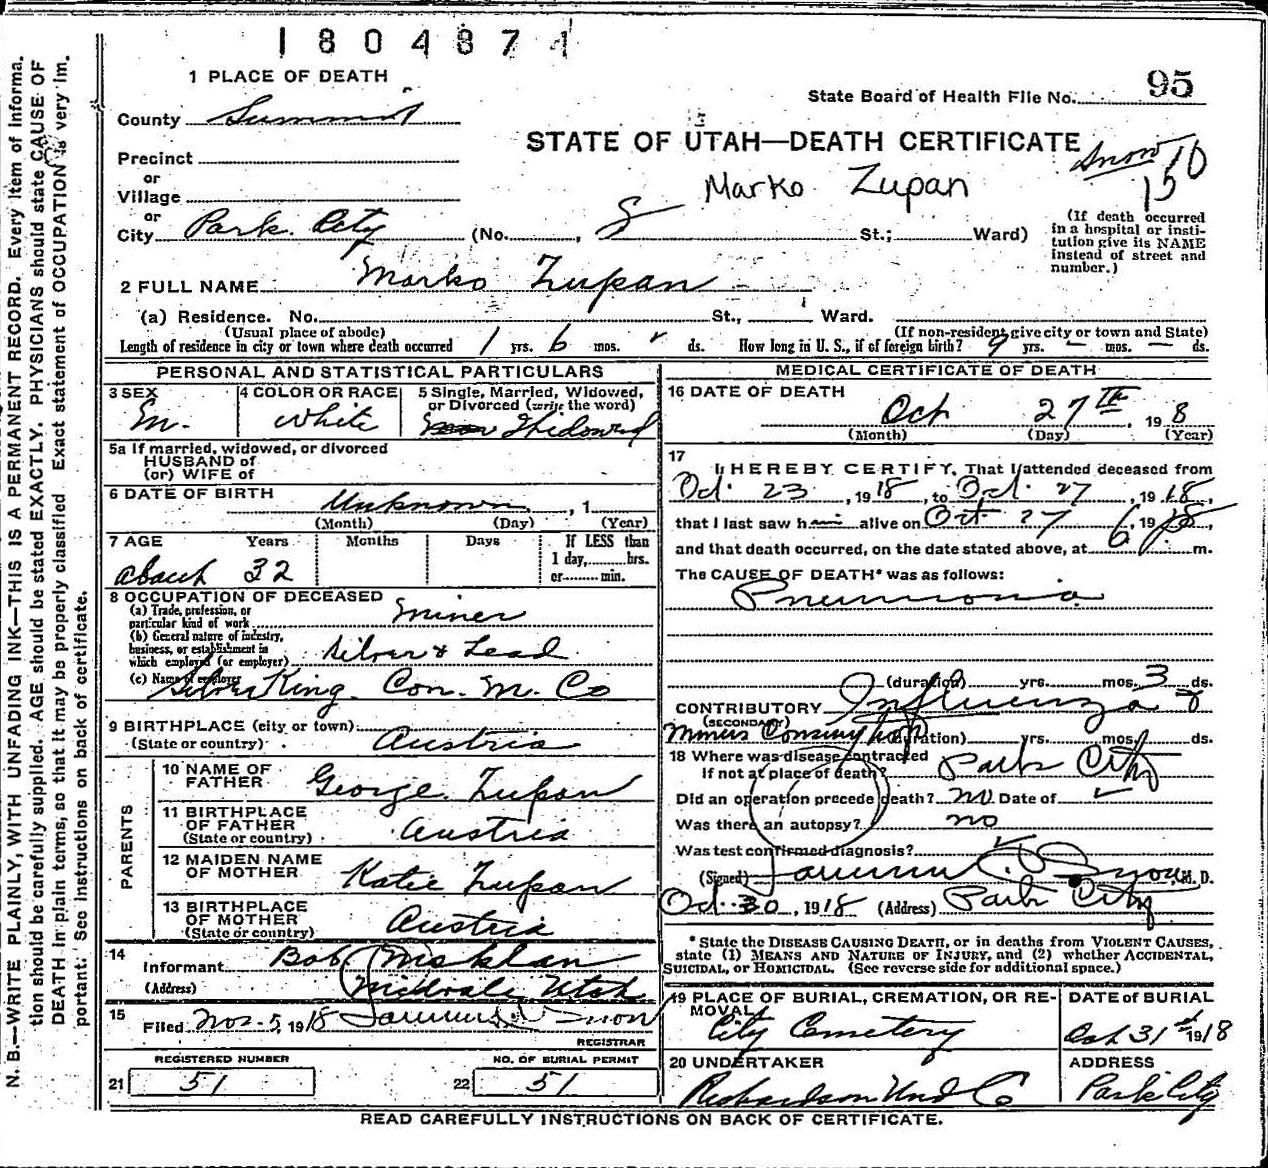 1804871
1 PLACE OF DEATH
State Board of Health File No. 95
County Summit
STATE OF UTAH—DEATH CERTIFICATE
Snow 150
Precinct
or
Village
Marko Zupan
or
City Park City (No. , St.; Ward)
(If death occurred in a hospital or institution give its NAME instead of street and number.)
2 FULL NAME Marko Zupan
(a) Residence. No. St., Ward.
(Usual place of abode)
(If non-resident give city or town and State)
Length of residence in city or town where death occurred 1 yrs. 6 mos. ds. How long in U. S., if of foreign birth? 9 yrs. — mos. — ds.
PERSONAL AND STATISTICAL PARTICULARS
3 SEX
M.
4 COLOR OR RACE
White
5 Single, Married, Widowed, or Divorced (write the word)
Widowed
5a If married, widowed, or divorced
HUSBAND of
(or) WIFE of
6 DATE OF BIRTH Unknown, 1
(Month) (Day) (Year)
7 AGE Years Months Days If LESS than
1 day, hrs.
or min.
about 32
8 OCCUPATION OF DECEASED
(a) Trade, profession, or particular kind of work Miner
(b) General nature of industry, business, or establishment in which employed (or employer) Silver & Lead
(c) Name of employer Silver King Con. M. Co
9 BIRTHPLACE (city or town)
(State or country) Austria
PARENTS
10 NAME OF FATHER George Zupan
11 BIRTHPLACE OF FATHER (State or country) Austria
12 MAIDEN NAME OF MOTHER Katie Zupan
13 BIRTHPLACE OF MOTHER (State or country) Austria
14
Informant Bob
(Address) Midvale Utah
15
Filed Nov-5, 1918 Snow
REGISTRAR
REGISTERED NUMBER
21 51
NO. OF BURIAL PERMIT
22 51
MEDICAL CERTIFICATE OF DEATH
16 DATE OF DEATH
Oct 27th, 198
(Month) (Day) (Year)
17
I HEREBY CERTIFY, That I attended deceased from
Oct. 23, 1918, to Oct. 27, 1918,
that I last saw him alive on Oct. 27, 1918
and that death occurred, on the date stated above, at 6 m.
The CAUSE OF DEATH* was as follows:
Pneumonia
(duration) yrs. mos. 3 ds.
CONTRIBUTORY Influenza
(SECONDARY)
Miners Consumption
(duration) yrs. mos. ds.
18 Where was disease contracted
If not at place of death? Park City
Did an operation precede death? no Date of
Was there an autopsy? no
Was test confirmed diagnosis?
(Signed) Snow, M. D.
Oct. 30, 1918 (Address) Park City
*State the DISEASE CAUSING DEATH, or in deaths from VIOLENT CAUSES, state (1) MEANS AND NATURE OF INJURY, and (2) whether ACCIDENTAL, SUICIDAL, or HOMICIDAL. (See reverse side for additional space.)
19 PLACE OF BURIAL, CREMATION, OR REMOVAL
City Cemetery
DATE of BURIAL
Oct 31st 1918
20 UNDERTAKER
Richardson Und Co
ADDRESS
Park City
READ CAREFULLY INSTRUCTIONS ON BACK OF CERTIFICATE.
N. B.—WRITE PLAINLY, WITH UNFADING INK—THIS IS A PERMANENT RECORD. Every item of information should be carefully supplied. AGE should be stated EXACTLY. PHYSICIANS should state CAUSE OF DEATH in plain terms, so that it may be properly classified. Exact statement of OCCUPATION is very important. See instructions on back of certificate.